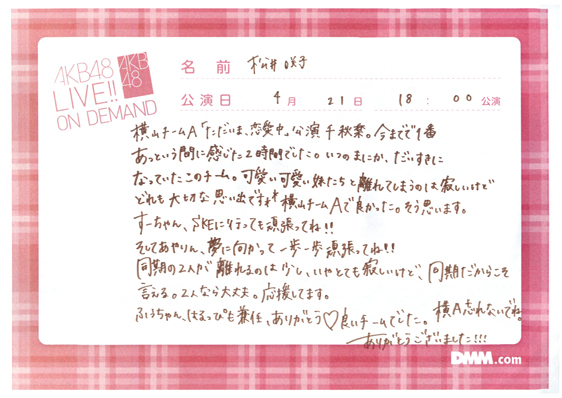 AKB48
LIVE!!
ON DEMAND
AKB
48
名前 松井咲子
公演日 4月 21日 18:00公演
横山チームA「ただいま、恋愛中」公演 千秋楽。今までで1番
あっという間に感じた2時間でした。いつのまにか、だいすきに
なっていたこのチーム。可愛い可愛い妹たちと離れてしまうのは寂しいけど
どれも大切な思い出です 横山チームAで良かった。そう思います。
すーちゃん、SKEに行っても頑張ってね!!
そしてあやりん、夢に向かって一歩一歩頑張ってね!!
同期の2人が離れるのは少し、いやとても寂しいけど、同期だからこそ
言える。2人なら大丈夫。応援してます。
ふぅちゃん、はるっぴも兼任、ありがとう♡良いチームでした。横A忘れないでね。
ありがとうございました!!!
DMM.com